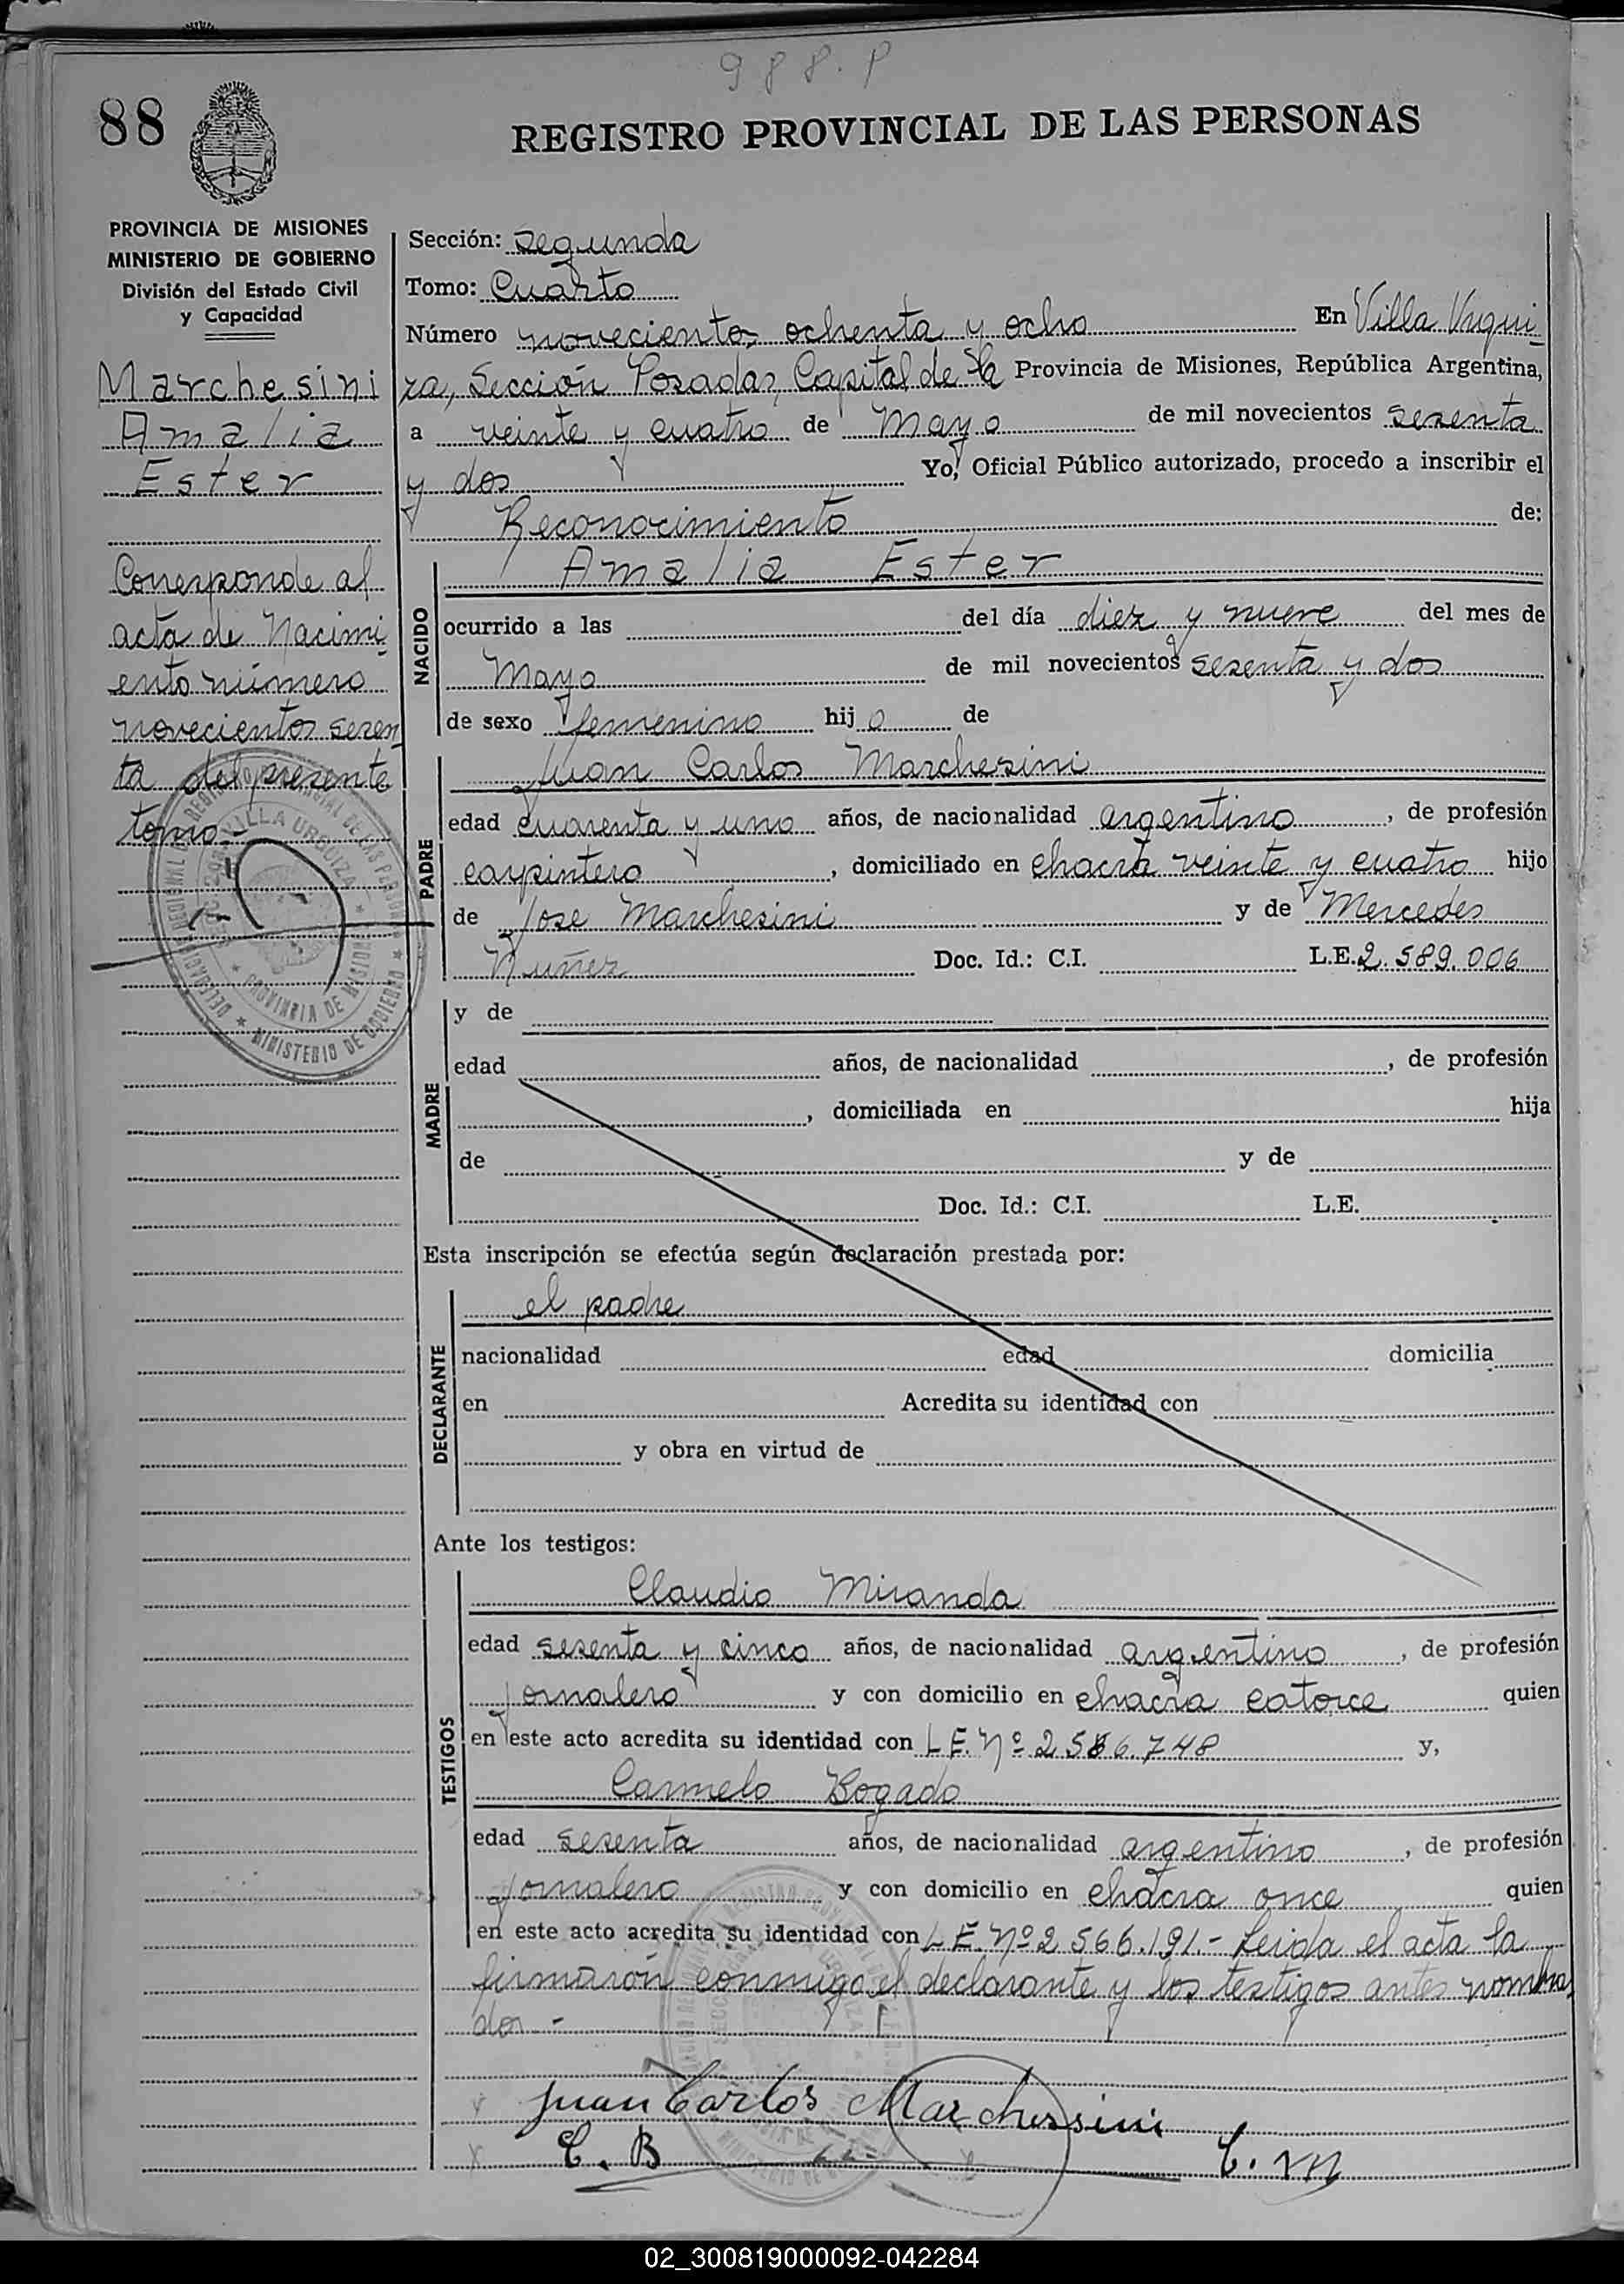 988. P
88
REGISTRO PROVINCIAL DE LAS PERSONAS
PROVINCIA DE MISIONES
MINISTERIO DE GOBIERNO
División del Estado Civil
y Capacidad
Marchesini
Amalia
Ester
Corresponde al
acta de Nacimi
ento número
novecientos sesen
ta del presente
tomo-
Sección: segunda
Tomo: Cuarto
Número novecientos ochenta y ocho En Villa Urqui
za, Sección Posadas, Capital de la Provincia de Misiones, República Argentina,
a veinte y cuatro de Mayo de mil novecientos sesenta
y dos Yo, Oficial Público autorizado, procedo a inscribir el
Reconocimiento de:
NACIDO
Amalia Ester
ocurrido a las del día diez y nueve del mes de
Mayo de mil novecientos sesenta y dos
de sexo femenino hijo de
PADRE
Juan Carlos Marchesini
edad cuarenta y uno años, de nacionalidad argentino, de profesión
carpintero, domiciliado en chacra veinte y cuatro hijo
de Jose Marchesini y de Mercedes
Nuñez Doc. Id.: C.I. L.E. 2.589.006
MADRE
y de
edad años, de nacionalidad , de profesión
, domiciliada en hija
de y de
Doc. Id.: C.I. L.E.
Esta inscripción se efectúa según declaración prestada por:
DECLARANTE
el padre
nacionalidad edad domicilia
en Acredita su identidad con
y obra en virtud de
Ante los testigos:
TESTIGOS
Claudio Miranda
edad sesenta y cinco años, de nacionalidad argentino, de profesión
jornalero y con domicilio en chacra catorce quien
en este acto acredita su identidad con L.E. Nº 2.586.748 y,
Carmelo Bogado
edad sesenta años, de nacionalidad argentino, de profesión
jornalero y con domicilio en chacra once quien
en este acto acredita su identidad con L.E. Nº 2.566.191.- Leida el acta la
firmarón conmigo el declarante y los testigos antes nombra
dos -
Juan Carlos Marchessini
C. B C. M
02_300819000092-042284